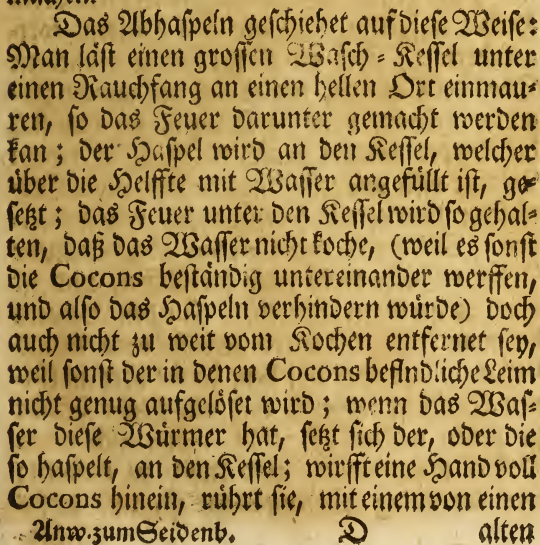 Das Abhaspeln geschiehet auf diese Weise:
Man läst einen grossen Wasch-Kessel unter
einen Rauchfang an einen hellen Ort einmau-
ren, so das Feuer darunter gemacht werden
kan; der Haspel wird an den Kessel, welcher
über die Helffte mit Wasser angefüllt ist, ge-
setzt; das Feuer unter den Kessel wird so gehal-
ten, daß das Wasser nicht koche, (weil es sonst
die Cocons beständig untereinander werffen,
und also das Haspeln verhindern würde) doch
auch nicht zu weit vom Kochen entfernet sey,
weil sonst der in denen Cocons befindliche Leim
nicht genug aufgelöset wird; wenn das Was-
ser diese Würmer hat, setzt sich der, oder die
so haspelt, an den Kessel; wirfft eine Hand voll
Cocons hinein, rührt sie, mit einem von einen
Anw. zum Seidenb. D alten